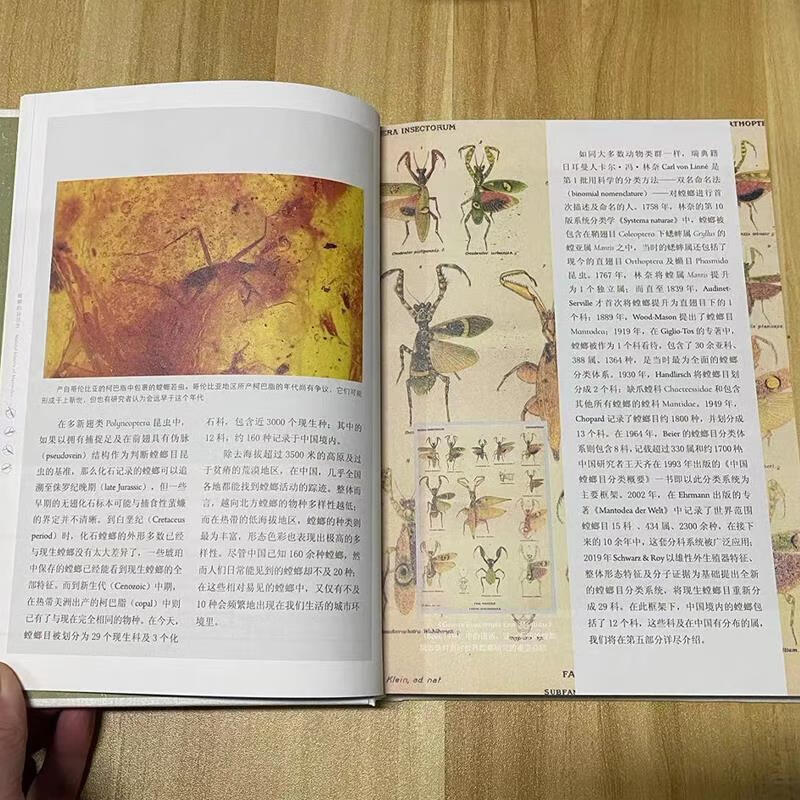 产自哥伦比亚的柯巴脂中包裹的螳螂若虫。哥伦比亚地区所产柯巴脂的年代尚有争议，它们可能
形成于上新世，但也有研究者认为会远早于这个年代
在多新翅类 Polyneoptera 昆虫中，
如果以拥有捕捉足及在前翅具有伪脉
（pseudovein）结构作为判断螳螂目昆
虫的基准，那么化石记录的螳螂可以追
溯至侏罗纪晚期（late Jurassic），但一些
早期的无翅化石标本可能与捕食性蜚蠊
的界定并不清晰。到白垩纪（Cretaceus
period）时，化石螳螂的外形多数已经
与现生螳螂没有太大差异了，一些琥珀
中保存的螳螂已经能看到现生螳螂的全
部特征。而到新生代（Cenozoic）中期，
在热带美洲出产的柯巴脂（copal）中则
已有了与现在完全相同的物种。在今天，
螳螂目被划分为 29 个现生科及 3 个化
石科，包含近 3000 个现生种；其中的
12 科，约 160 种记录于中国境内。
除去海拔超过 3500 米的高原及过
于贫瘠的荒漠地区，在中国，几乎全国
各地都能找到螳螂活动的踪迹。整体而
言，越向北方螳螂的物种多样性越低；
而在热带的低海拔地区，螳螂的种类则
最为丰富，形态色彩也表现出极高的多
样性。尽管中国已知 160 余种螳螂，然
而人们日常能见到的螳螂却不及 20 种；
在这些相对易见的螳螂中，又仅有不及
10 种会频繁地出现在我们生活的城市环
境里。
ERA INSECTORUM
Klein, ad. nat.
FA
SUBFAM
如同大多数动物类群一样，瑞典籍
日耳曼人卡尔·冯·林奈 Carl von Linné 是
第 1 批用科学的分类方法——双名命名法
（binomial nomenclature）——对螳螂进行首
次描述及命名的人。1758 年，林奈的第 10
版系统分类学《Systema naturae》中，螳螂被
包含在鞘翅目 Coleoptera 下蟋蟀属 Gryllus 的
螳亚属 Mantis 之中，当时的蟋蟀属还包括了
现今的直翅目 Orthoptera 及䗛目 Phasmida
昆虫。1767 年，林奈将螳属 Mantis 提升
为 1 个独立属；而直至 1839 年，Audinet-
Serville 才首次将螳螂提升为直翅目下的 1
个科；1889 年，Wood-Mason 提出了螳螂目
Mantodea；1919 年，在 Giglio-Tos 的专著中，
螳螂被作为 1 个科看待，包含了 30 余亚科、
388 属，1364 种，是当时最为全面的螳螂
分类体系。1930 年，Handlirsch 将螳螂目划
分成 2 个科；缺爪螳科 Chaeteessidae 和包含
其他所有螳螂的螳科 Mantidae。1949 年，
Chopard 记录了螳螂目约 1800 种，并划分成
13 个科。在 1964 年，Beier 的螳螂目分类体
系则包含 8 科，记载超过 330 属和约 1700 种；
中国研究者王天齐在 1993 年出版的《中国
螳螂目分类概要》一书即以此分类系统为
主要框架。2002 年，在 Ehrmann 出版的专
著《Mantodea der Welt》中记录了世界范围
螳螂目 15 科、434 属、2300 余种，在接下
来的 10 余年中，这套分科系统被广泛应用；
2019 年 Schwarz & Roy 以雄性外生殖器特征、
整体形态特征及分子证据为基础提出全新
的螳螂目分类系统，将现生螳螂目重新分
成 29 科。在此框架下，中国境内的螳螂包
括了 12 个科，这些科及在中国有分布的属，
我们将在第五部分详尽介绍。